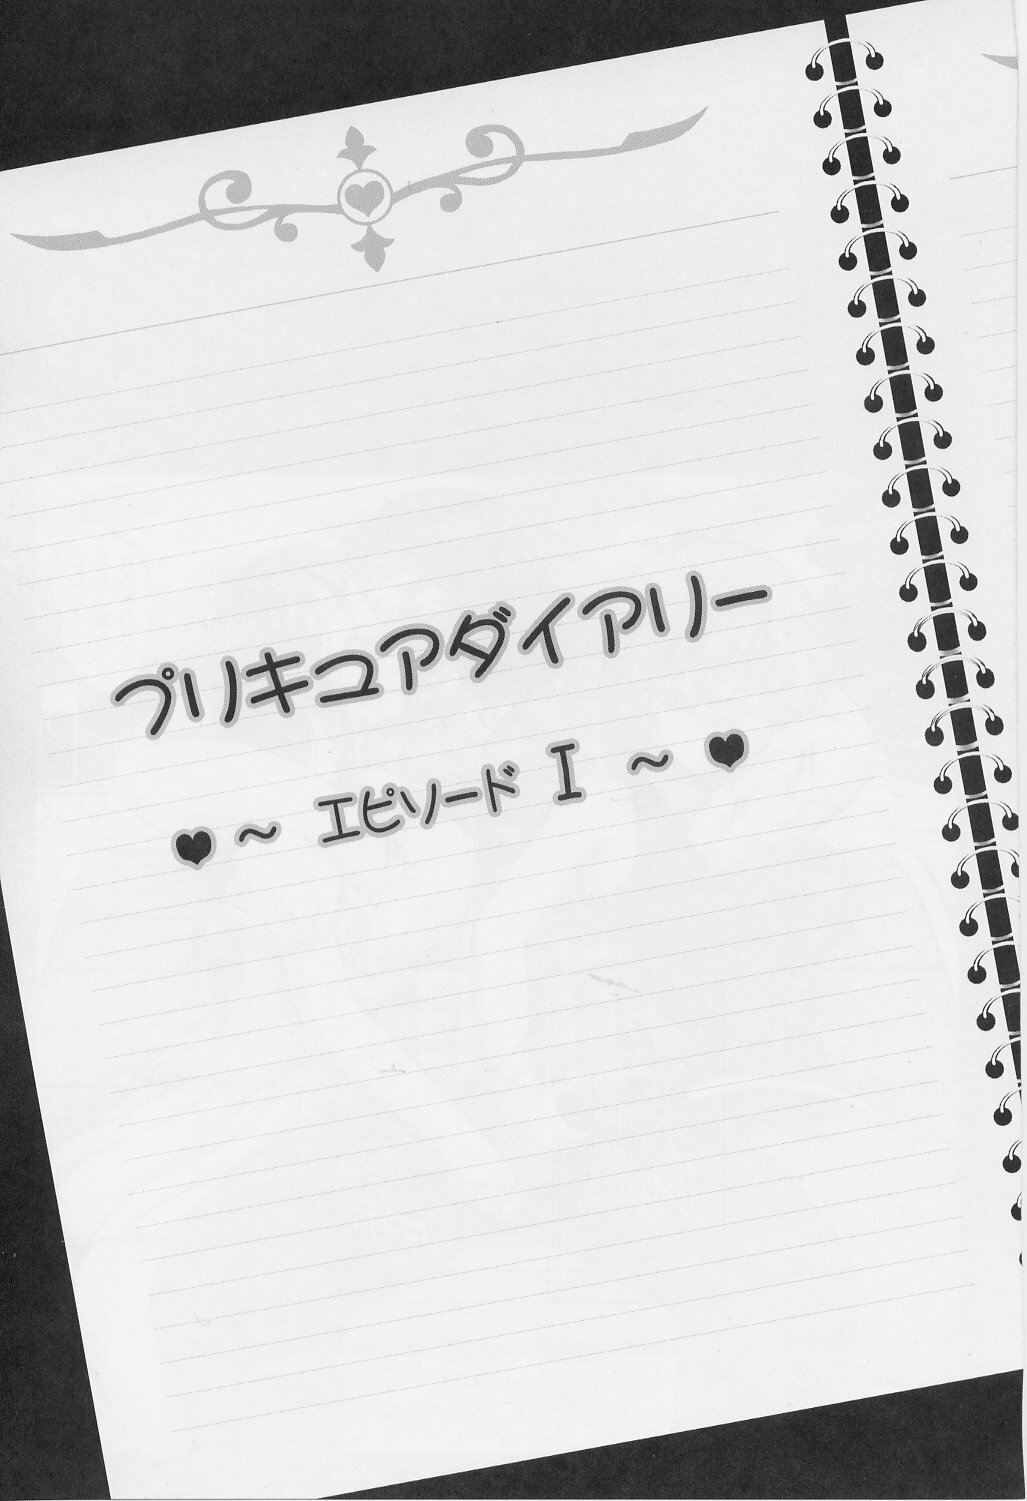 プリキュアダイアリー
♥～ エピソード I ～♥